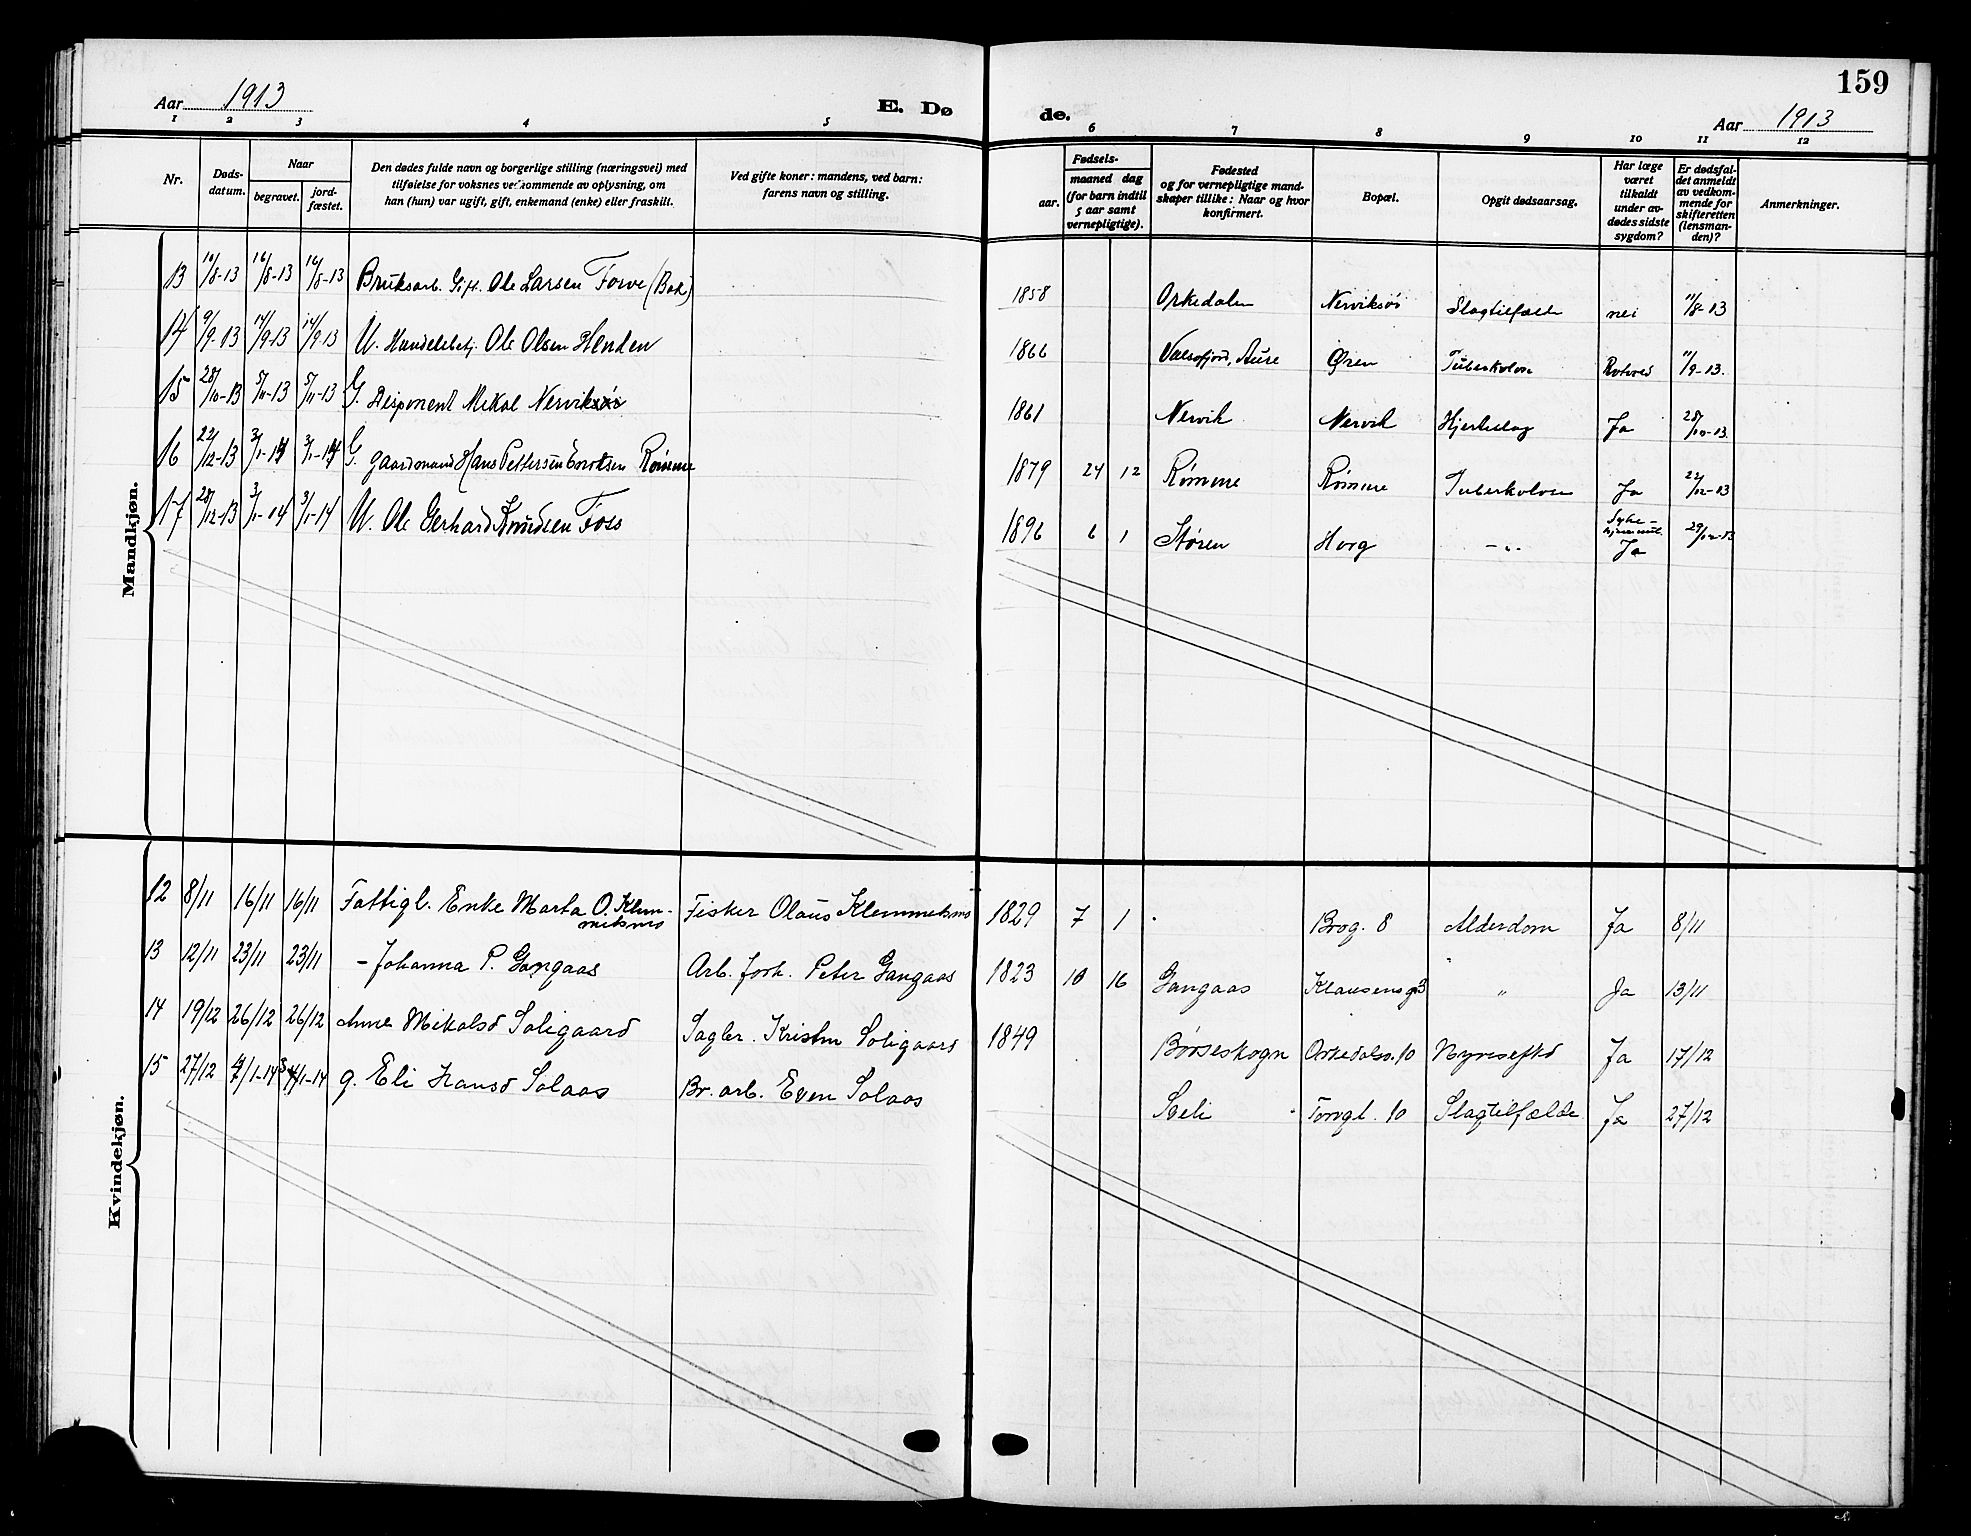 159
Aar 1913 E. Døde. Aar 1913
1 2 3 4 5 6 7 8 9 10 11 12
Nr. Dødsdatum. Naar begravet. jordfæstet. Den dødes fulde navn og borgerlige stilling (næringsvei) med tilføielse for voksnes vedkommende av oplysning, om han (hun) var ugift, gift, enkemand (enke) eller fraskilt. Ved gifte koner: mandens, ved barn: farens navn og stilling. Fødsels- aar. maaned dag (for barn indtil 5 aar samt vernepligtige). Fødested og for vernepligtige mandskaper tillike: Naar og hvor konfirmert. Bopæl. Opgit dødsaarsag. Har læge været tilkaldt under avdødes sidste sygdom? Er dødsfaldet anmeldt av vedkommende for skifteretten (lensmanden)? Anmerkninger.
Mandkjøn.
13 10/8-13 16/8-13 16/8-13 Bruksarb. Gift. Ole Larsen Forve (Bak) 1858 Orkedalen Nerviksøi Slagtilfælde nei 11/8-13
14 9/9-13 14/9-13 14/9-13 U. Handelsbetj. Ole Olsen Henden 1866 Valsøfjord, Aure Øren Tuberkulose 11/9-13.
15 28/10-13 5/11-13 5/11-13 G. Disponent Mikal Nerviksøi 1861 Nervik Nervik Hjerteslag Ja 28/10-13.
16 22/12-13 3/1-14 3/1-14 G. gaardmand Hans Pettersen Rømme 1879 24 12 Rømme Rømme Tuberkulose Ja 22/12-13
17 28/12-13 3/1-14 3/1-14 U. Ole Gerhard Knudsen Foss 1896 6 1 Støren Horg -"- Ja 29/12-13
Kvindekjøn.
12 8/11 16/11 16/11 Fattigl. Enke Marta O. Klemmetsens Fisker Olaus Klemmetsens 1829 7 1 Brog. 8 Alderdom Ja 8/11
13 12/11 23/11 23/11 - Johanna P. Gangaas Arb. forh. Peter Gangaas 1823 10 16 Gangaas Klausensg 3 " Ja 13/11
14 19/12 26/12 26/12 Anne Mikalsd Soligaard Sagler. Kristen Soligaard 1849 Børseskogn Orkedalsv. 10 Ja 17/12
15 27/12 4/1-14 4/1-14 g. Eli Hansd Solaas Br. arb. Even Solaas Seli Torvgt. 10 Slagtilfælde Ja 27/12